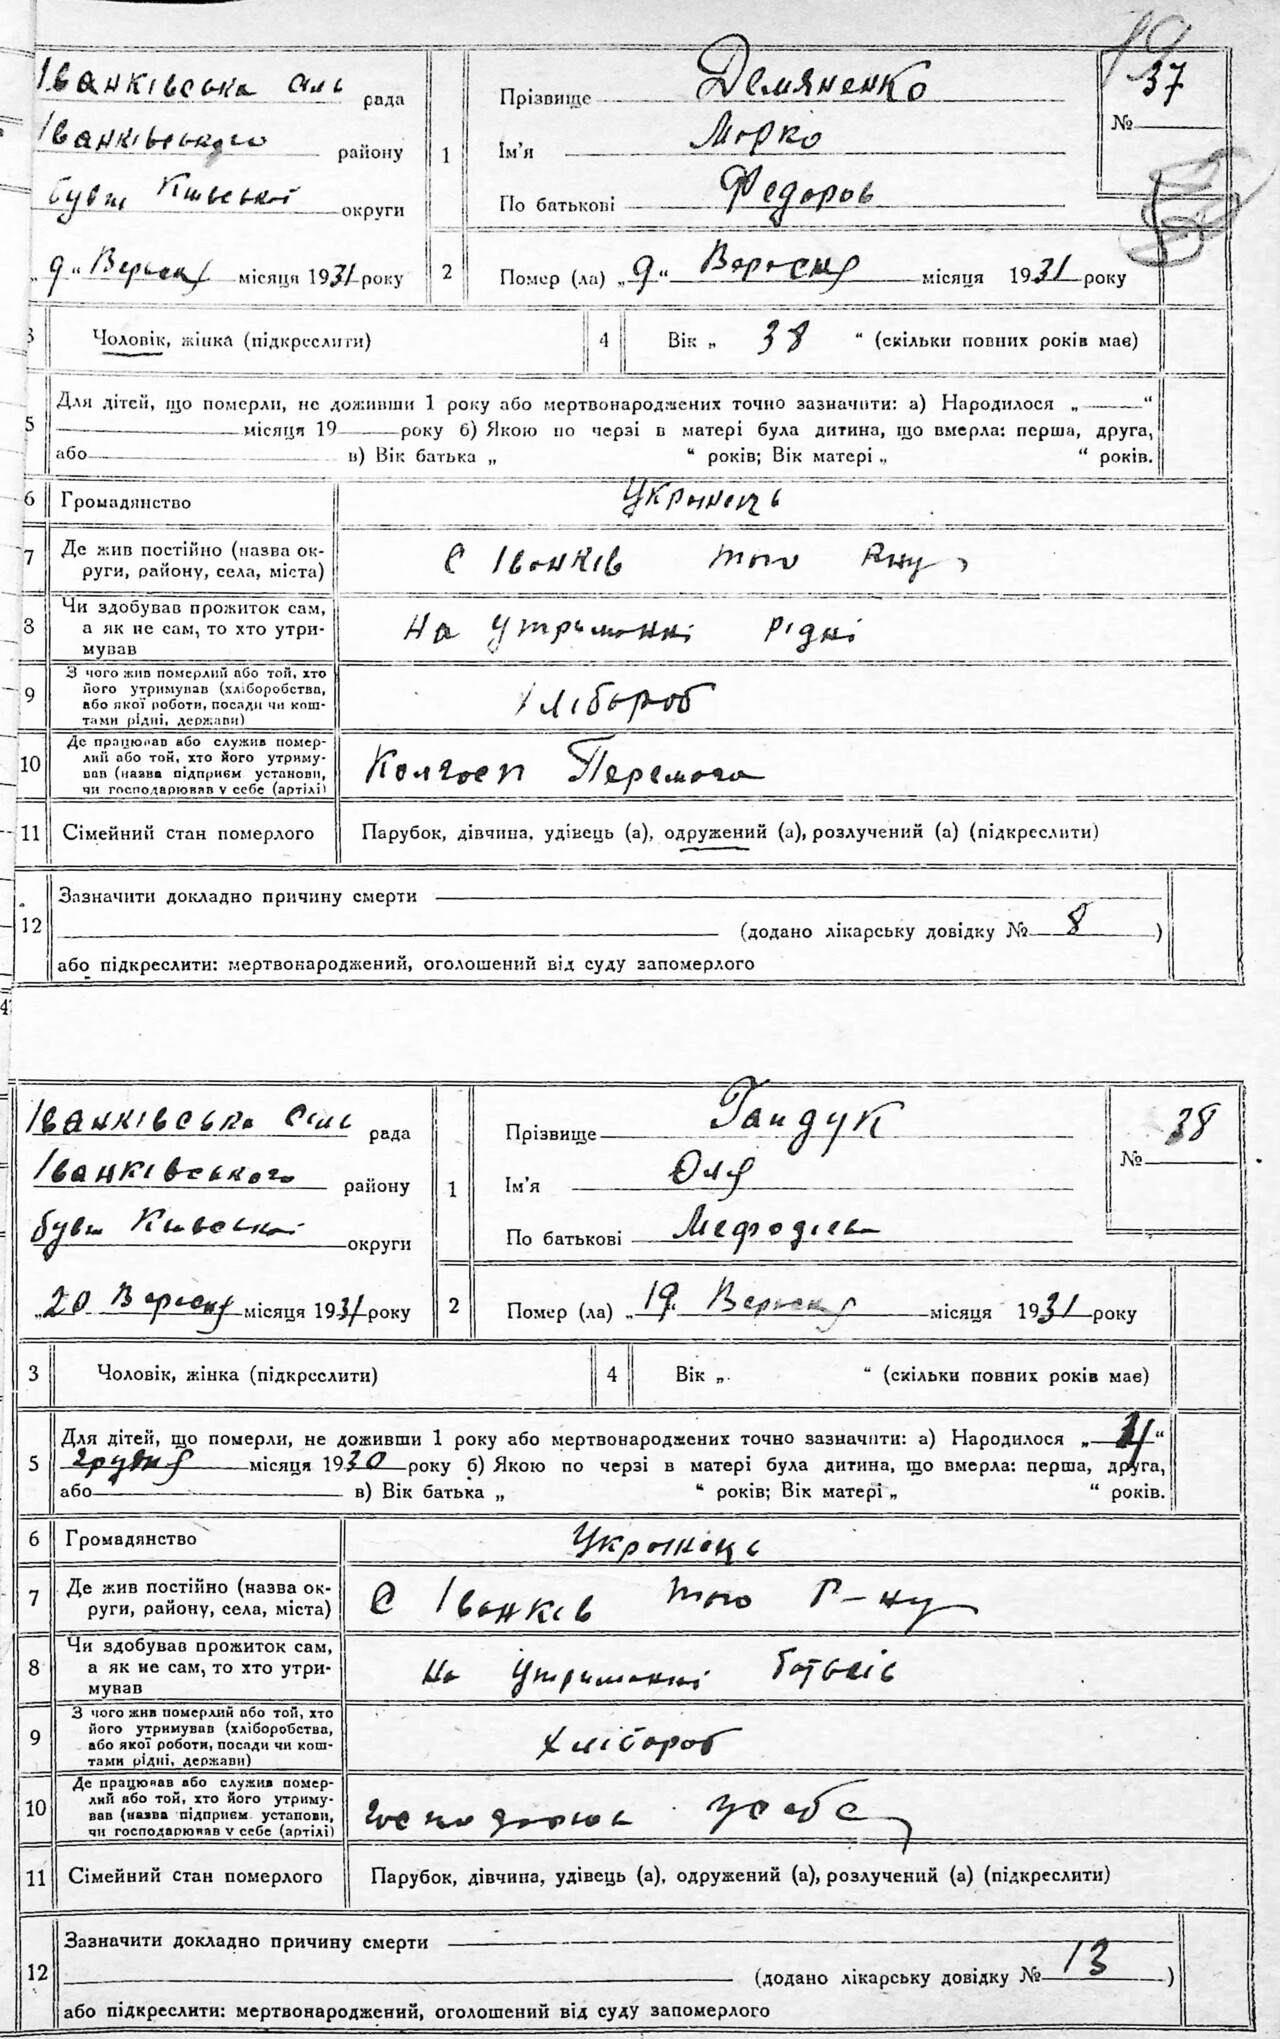 37
Іванківська сіль рада
Іванківського району
бувш Київської округи
„9“ Вересня місяця 1931 року
1
Прізвище Демяненко
Ім'я Марко
По батькові Федоров
№
2
Помер (ла) „9“ Вересня місяця 1931 року
3
Чоловік, жінка (підкреслити)
4
Вік „ 38 “ (скільки повних років має)
5
Для дітей, що померли, не доживши 1 року або мертвонароджених точно зазначити: а) Народилося „ “
місяця 19 року б) Якою по черзі в матері була дитина, що вмерла: перша, друга,
або в) Вік батька „ “ років; Вік матері „ “ років.
6
Громадянство
Українець
7
Де жив постійно (назва ок-
руги, району, села, міста)
С Іванків того
8
Чи здобував прожиток сам,
а як не сам, то хто утри-
мував
на утриманні рідні
9
З чого жив померлий або той, хто
його утримував (хліборобства,
або якої роботи, посади чи кош-
тами рідні, держави)
Хлібороб
10
Де працював або служив помер-
лий або той, хто його утриму-
вав (назва підприєм установи,
чи господарював у себе (артілі)
Колгосп Перемога
11
Сімейний стан померлого
Парубок, дівчина, удівець (а), одружений (а), розлучений (а) (підкреслити)
12
Зазначити докладно причину смерти
(додано лікарську довідку № 8 )
або підкреслити: мертвонароджений, оголошений від суду запомерлого
Іванківська сіль рада
Іванківського району
бувш Київської округи
„20 Вересня місяця 1931 року
1
Прізвище Гайдук
Ім'я Оля
По батькові Мефодієва
38
№
2
Помер (ла) „19“ Вересня місяця 1931 року
3
Чоловік, жінка (підкреслити)
4
Вік „ “ (скільки повних років має)
5
Для дітей, що померли, не доживши 1 року або мертвонароджених точно зазначити: а) Народилося „ “
грудня місяця 1930 року б) Якою по черзі в матері була дитина, що вмерла: перша, друга,
або в) Вік батька „ “ років; Вік матері „ “ років.
6
Громадянство
Українець
7
Де жив постійно (назва ок-
руги, району, села, міста)
С Іванків того Р-ну
8
Чи здобував прожиток сам,
а як не сам, то хто утри-
мував
на утриманні батьків
9
З чого жив померлий або той, хто
його утримував (хліборобства,
або якої роботи, посади чи кош-
тами рідні, держави)
Хлібороб
10
Де працював або служив помер-
лий або той, хто його утриму-
вав (назва підприєм установи,
чи господарював у себе (артілі)
у себе
11
Сімейний стан померлого
Парубок, дівчина, удівець (а), одружений (а), розлучений (а) (підкреслити)
12
Зазначити докладно причину смерти
(додано лікарську довідку № 13 )
або підкреслити: мертвонароджений, оголошений від суду запомерлого